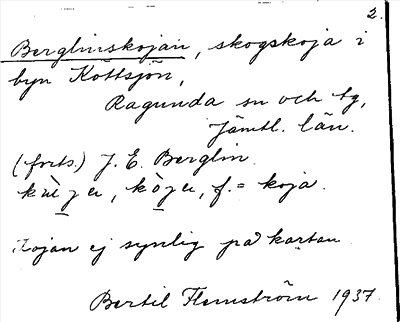 2.
Berglinskojan, skogskoja i
byn Köttsjön,
Ragunda sn och tg,
Jämtl. län.
(forts.) J. E. Berglin.
f. = koja.
Kojan ej synlig på kartan
Bertil Flemström 1937.